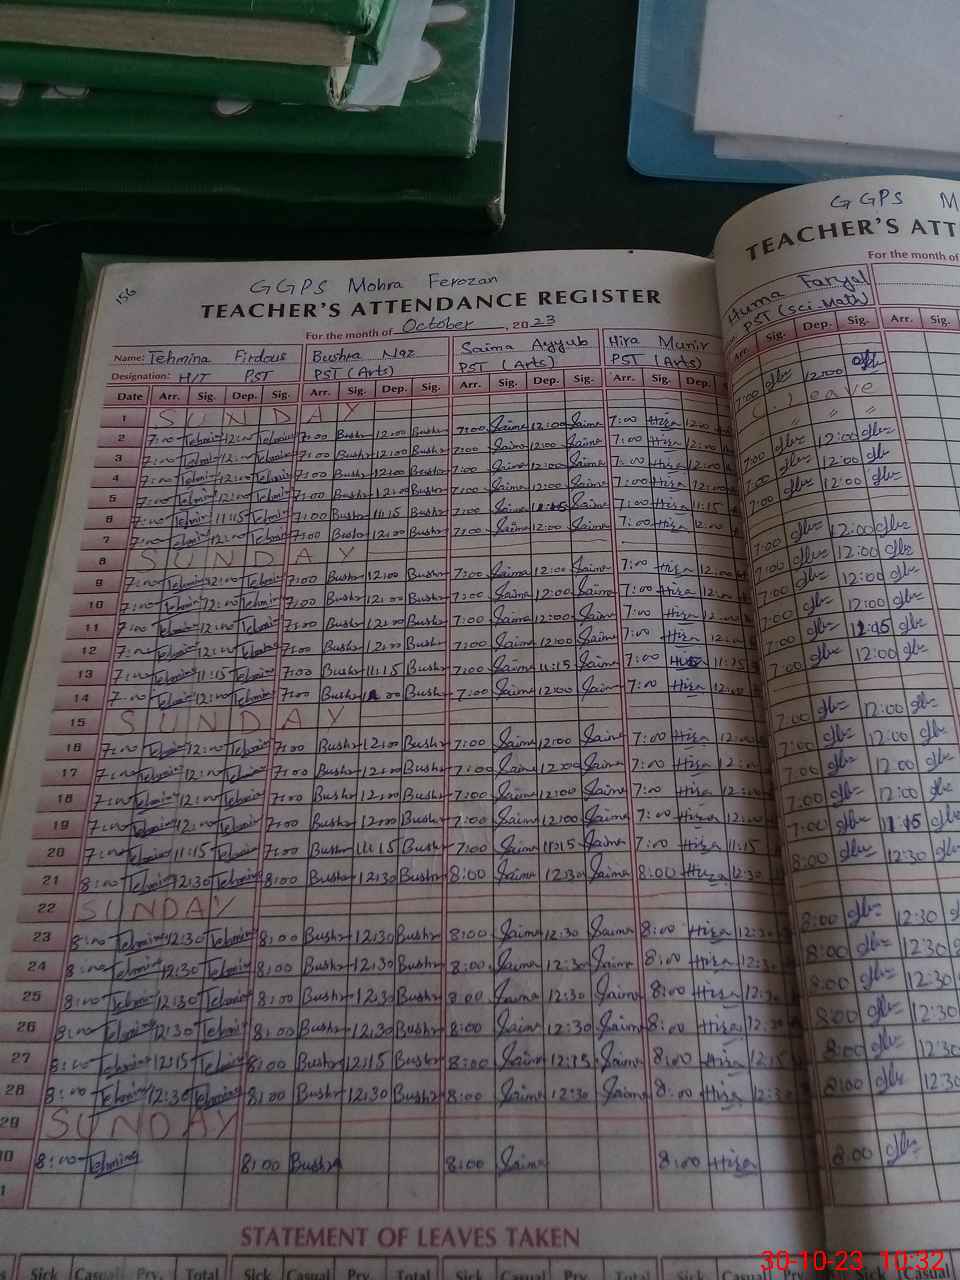 GGPS M
TEACHER'S ATT
For the month of
Huma Faryal
PST (Sci.Math)
Arr. Sig. Dep. Sig. Arr. Sig.
156
GGPS Mohra Ferozan
TEACHER'S ATTENDANCE REGISTER
For the month of October, 2023
Name: Tehmina Firdous Bushra Naz Saima Ayyub Hira Munir
Designation: H/T PST PST (Arts) PST (Arts) PST (Arts)
Date Arr. Sig. Dep. Sig. Arr. Sig. Dep. Sig. Arr. Sig. Dep. Sig. Arr. Sig. Dep.
1 SUNDAY
2 7:00 Tehmina 12:00 Tehmina 7:00 Bushra 12:00 Bushra 7:00 Saima 12:00 Saima 7:00 Hira 12:00
3 7:00 Tehmina 12:00 Tehmina 7:00 Bushra 12:00 Bushra 7:00 Saima 12:00 Saima 7:00 Hira 12:00
4 7:00 Tehmina 12:00 Tehmina 7:00 Bushra 12:00 Bushra 7:00 Saima 12:00 Saima 7:00 Hira 12:00
5 7:00 Tehmina 12:00 Tehmina 7:00 Bushra 12:00 Bushra 7:00 Saima 12:00 Saima 7:00 Hira 12:00
6 7:00 Tehmina 11:15 Tehmina 7:00 Bushra 11:15 Bushra 7:00 Saima 11:15 Saima 7:00 Hira 11:15
7 7:00 Tehmina 12:00 Tehmina 7:00 Bushra 12:00 Bushra 7:00 Saima 12:00 Saima 7:00 Hira 12:00
8 SUNDAY
9 7:00 Tehmina 12:00 Tehmina 7:00 Bushra 12:00 Bushra 7:00 Saima 12:00 Saima 7:00 Hira 12:00
10 7:00 Tehmina 12:00 Tehmina 7:00 Bushra 12:00 Bushra 7:00 Saima 12:00 Saima 7:00 Hira 12:00
11 7:00 Tehmina 12:00 Tehmina 7:00 Bushra 12:00 Bushra 7:00 Saima 12:00 Saima 7:00 Hira 12:00
12 7:00 Tehmina 12:00 Tehmina 7:00 Bushra 12:00 Bushra 7:00 Saima 12:00 Saima 7:00 Hira 12:00
13 7:00 Tehmina 11:15 Tehmina 7:00 Bushra 11:15 Bushra 7:00 Saima 11:15 Saima 7:00 Hira 11:15
14 7:00 Tehmina 12:00 Tehmina 7:00 Bushra 12:00 Bushra 7:00 Saima 12:00 Saima 7:00 Hira 12:00
15 SUNDAY
16 7:00 Tehmina 12:00 Tehmina 7:00 Bushra 12:00 Bushra 7:00 Saima 12:00 Saima 7:00 Hira 12:00
17 7:00 Tehmina 12:00 Tehmina 7:00 Bushra 12:00 Bushra 7:00 Saima 12:00 Saima 7:00 Hira 12:00
18 7:00 Tehmina 12:00 Tehmina 7:00 Bushra 12:00 Bushra 7:00 Saima 12:00 Saima 7:00 Hira 12:00
19 7:00 Tehmina 12:00 Tehmina 7:00 Bushra 12:00 Bushra 7:00 Saima 12:00 Saima 7:00 Hira 12:00
20 7:00 Tehmina 11:15 Tehmina 7:00 Bushra 11:15 Bushra 7:00 Saima 11:15 Saima 7:00 Hira 11:15
21 8:00 Tehmina 12:30 Tehmina 8:00 Bushra 12:30 Bushra 8:00 Saima 12:30 Saima 8:00 Hira 12:30
22 SUNDAY
23 8:00 Tehmina 12:30 Tehmina 8:00 Bushra 12:30 Bushra 8:00 Saima 12:30 Saima 8:00 Hira 12:30
24 8:00 Tehmina 12:30 Tehmina 8:00 Bushra 12:30 Bushra 8:00 Saima 12:30 Saima 8:00 Hira 12:30
25 8:00 Tehmina 12:30 Tehmina 8:00 Bushra 12:30 Bushra 8:00 Saima 12:30 Saima 8:00 Hira 12:30
26 8:00 Tehmina 12:30 Tehmina 8:00 Bushra 12:30 Bushra 8:00 Saima 12:30 Saima 8:00 Hira 12:30
27 8:00 Tehmina 12:15 Tehmina 8:00 Bushra 12:15 Bushra 8:00 Saima 12:15 Saima 8:00 Hira 12:15
28 8:00 Tehmina 12:30 Tehmina 8:00 Bushra 12:30 Bushra 8:00 Saima 12:30 Saima 8:00 Hira 12:30
29 SUNDAY
8:00 Tehmina 8:00 Bushra 8:00 Saima 8:00 Hira
7:00 12:00
Leave
" "
7:00 12:00
7:00 12:00
7:00 12:00
7:00 12:00
7:00 12:00
7:00 12:00
7:00 12:00
7:00 12:15
7:00 12:00
7:00 12:00
7:00 12:00
7:00 12:00
7:00 12:00
7:00 11:15
8:00 12:30
8:00 12:30
8:00 12:30
8:00 12:30
8:00 12:30
8:00 12:30
8:00 12:30
8:00
STATEMENT OF LEAVES TAKEN
Sick Casual Prv. Total Sick Casual Prv. Total Sick Casual Prv. Total Sick Casual
30-10-23 10:32